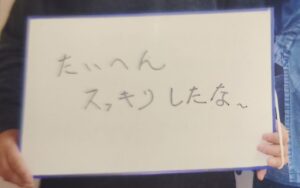 たいへん
スッキリしたな~